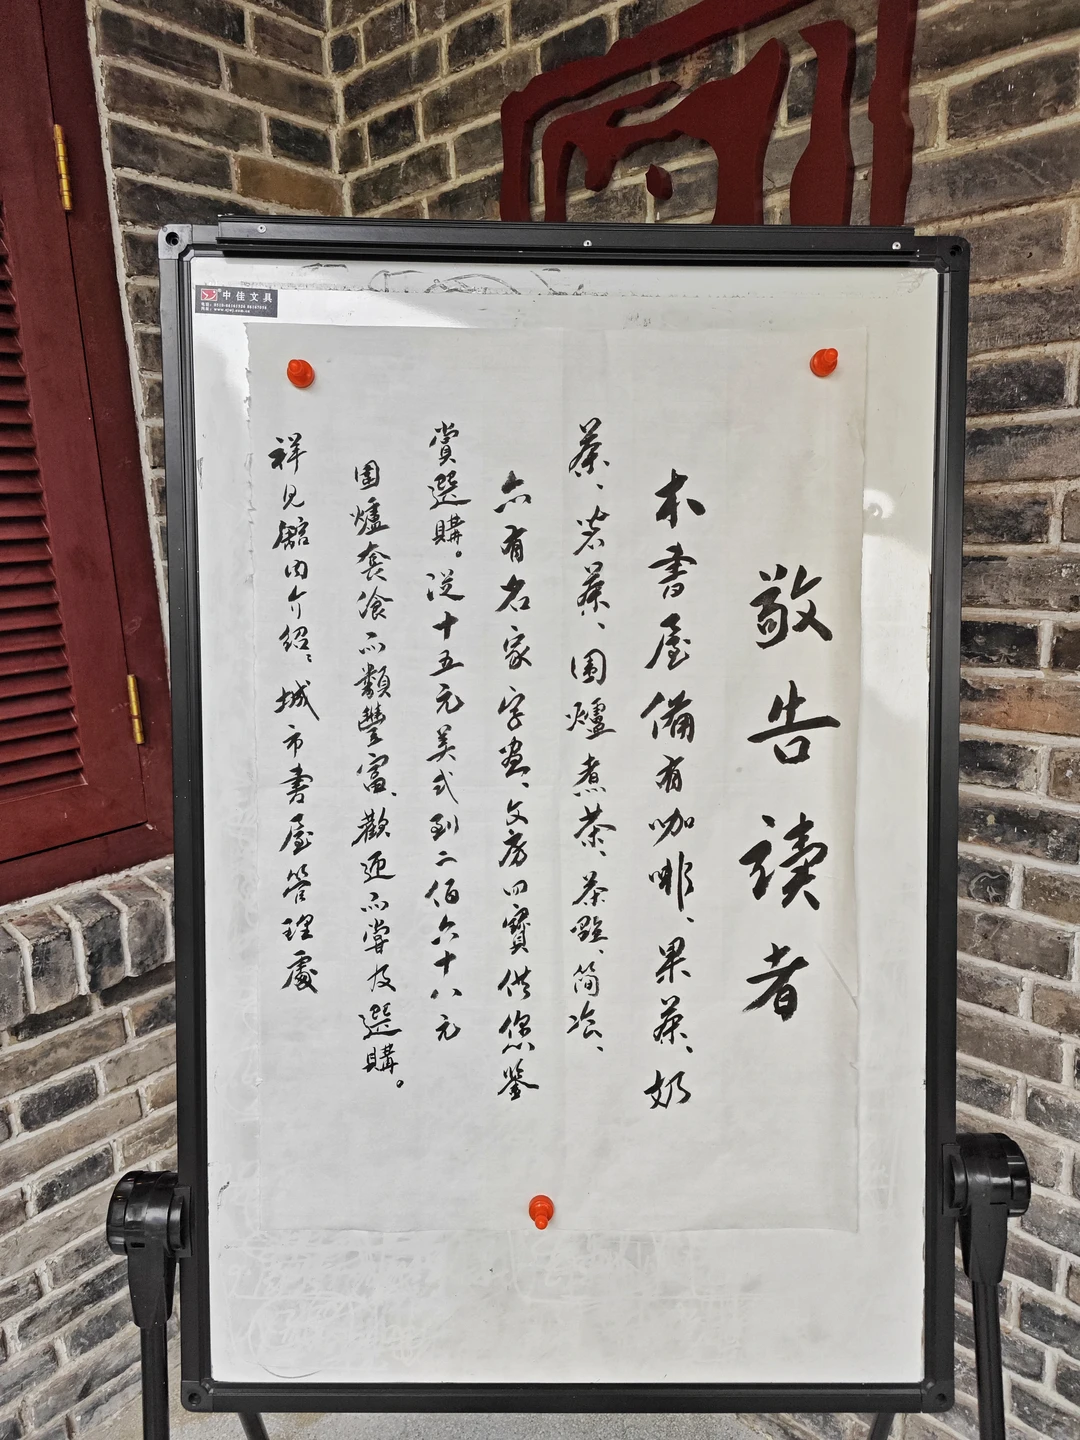 敬告讀者
本書屋備有咖啡、果茶、奶
茶、茗茶、圍爐煮茶、茶點、简飡、
亦有名家字畫、文房四寶供您鑒
賞選購。從十五元美式到二佰六十八元
圍爐套飡品類豐富、歡迎品嘗及選購。
祥見舘内介紹、城市書屋管理處
中佳文具